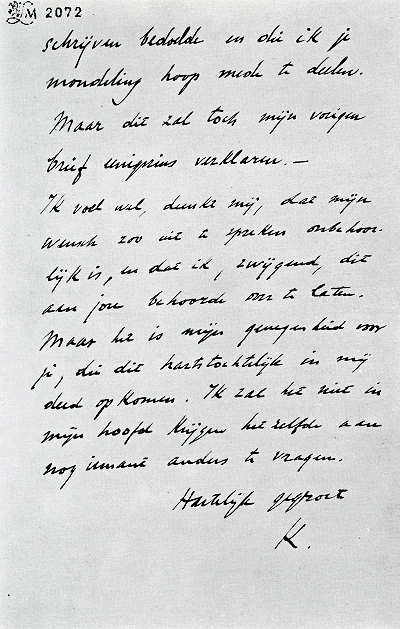 LM 2072
schrijven bedoelde en die ik je
mondeling hoop mede te deelen.
Maar dit zal toch mijn vorigen
brief eenigszins verklaren. —
Ik voel wel, dunkt mij, dat mijn
wensch zoo uit te spreken onbehoor-
lijk is, en dat ik, zwijgend, dit
aan jou behoorde over te laten.
Maar het is mijn genegenheid voor
je, die dit hartstochtelijk in mij
deed opkomen. Ik zal het niet in
mijn hoofd krijgen hetzelfde aan
nog iemant anders te vragen.
Hartelijk gegroet
K.